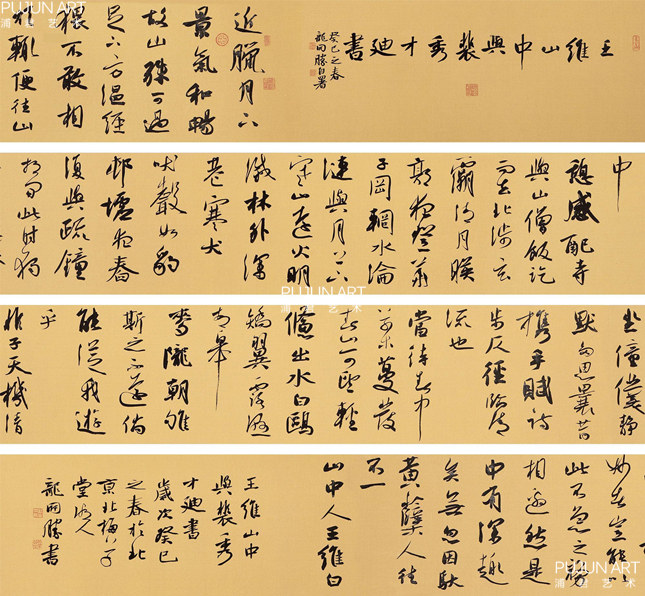 PUJUN ART
浦君艺术
王維山中與裴秀才迪書
癸巳之春
龍開勝自署
近臘月下
景氣和暢
故山殊可過
足下方溫經
猥不敢相
煩輒便往山
中
憩感配寺
與山僧飯訖
而去北涉玄
灞清月映
郭夜登華
子岡輞水淪
漣與月上下
寒山遠火明
滅林外深
巷寒犬
吠聲如豹
邨墟夜舂
復與疏鐘
相間此時獨
PUJUN ART
浦君艺术
坐僮僕靜
默多思曩昔
攜手賦詩
步仄徑臨清
流也
當待春中
草木蔓發
春山可望輕
鯈出水白鷗
矯翼露濕
青皋
麥隴朝雊
斯之不遠倘
能從我遊
乎
非子天機清
妙者豈能以
此不急之務
相邀然是
中有深趣
矣無忽因馱
黃蘗人往
不一
山中人王維白
王維山中
與裴秀
才迪書
歲次癸巳
之春於北
龍開勝書
PUJUN ART
浦君艺术